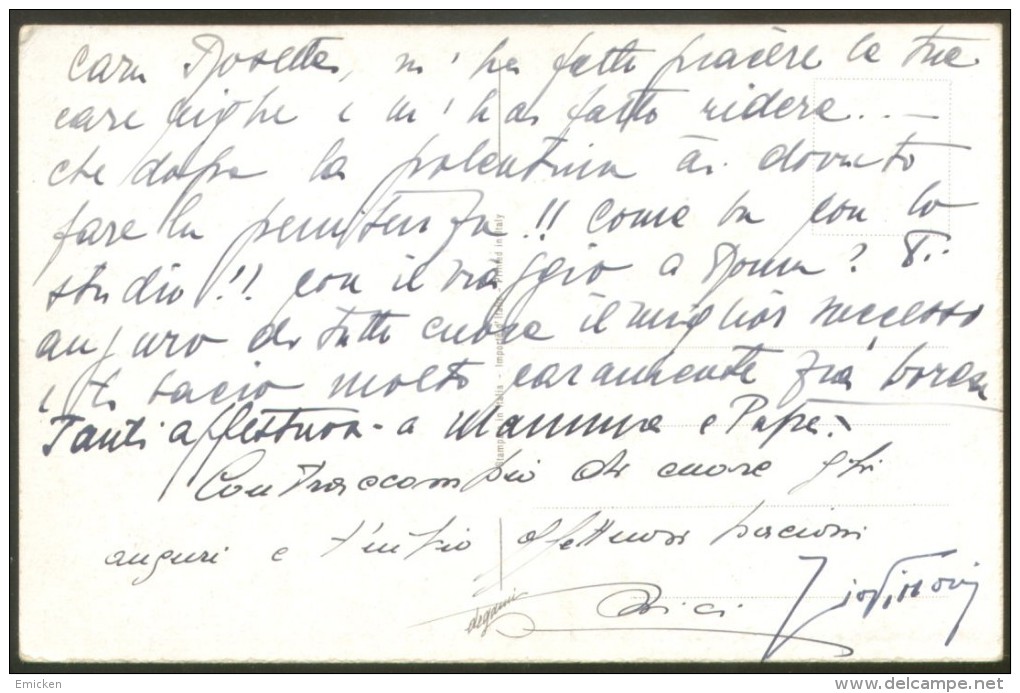 Cara Rosetta, m'ha fatto piacere le tue
care righe e m'hai fatto ridere...
che dopo la polentina ai dovuto
fare la penitenza!! Come va con lo
studio!! con il viaggio a Roma? Ti
auguro di tutto cuore il miglior successo
e ti bacio molto caramente zia
Tanti affettuosi a Mamma e Papà.
Contraccambio di cuore gli
auguri e t'invio affettuosi bacioni
Zio Vittorio
degami
Stampato in Italia - Imprimé d'Italie - Printed in Italy
Emicken
www.delcampe.net